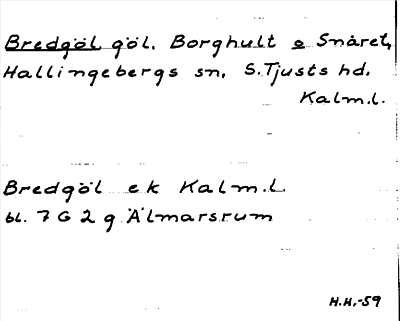 Bredgöl, göl, Borghult o Snåret,
Hallingebergs sn, S. Tjusts hd,
Kalm.l.
Bredgöl ek Kalm.l.
bl. 7 G 2 g Älmarsrum
H.H.-59